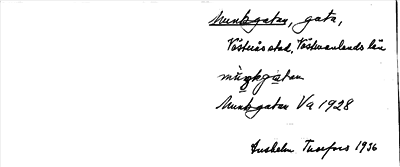 Munkgatan, gata,
Västerås stad, Västmanlands län
mùŋkgàtan
Munkgatan Va 1928
Anshelm Turfors 1936